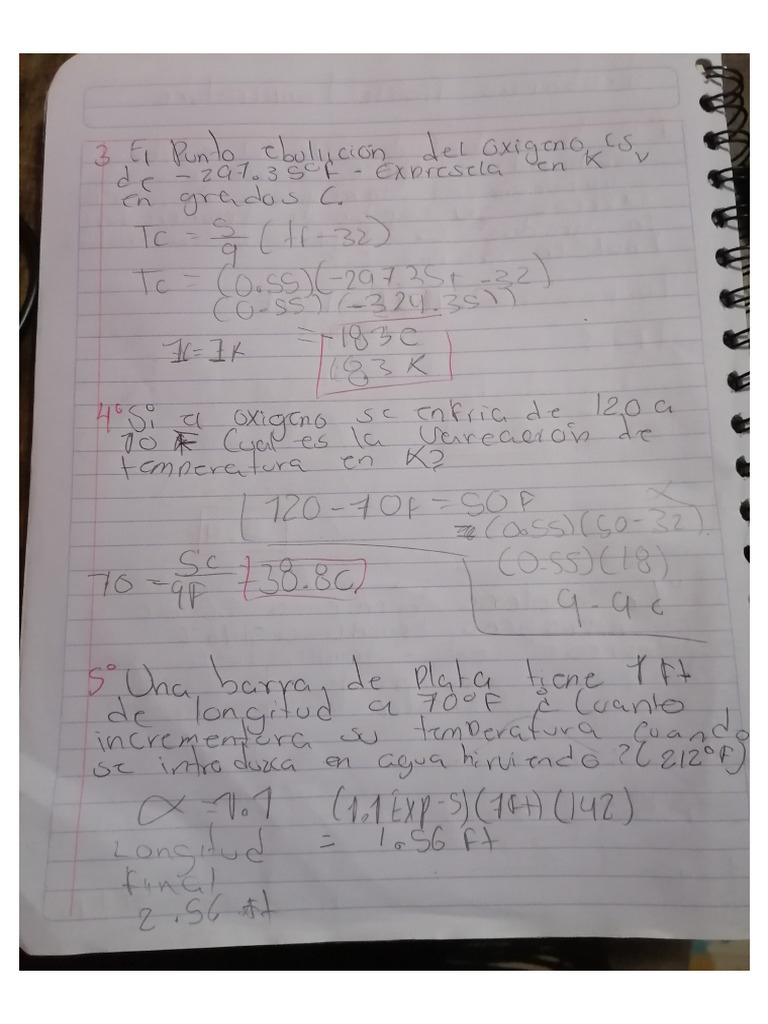 3 El Punto ebullición del oxigeno es
de -297.35°F - Expresela en K y
en grados C.
Tc = 5/9 (tf-32)
Tc = (0.55)(-297.35f -32)
(0.55) (-324.35))
1c=1K = -183c
183 K
4° Si el oxigeno se enfria de 120 a
70 F Cual es la vareación de
temperatura en K?
120-70f = 50F
(0.55)(50-32)
70 = 5c/9F = 38.8c
(0.55)(18)
9.9c
5° Una barra de plata tiene 1ft
de longitud a 70°F ¿Cuanto
incrementara su temperatura cuando
se introduzca en agua hirviendo?(212°F)
α = 1.1 (1.1Exp-5)(1ft)(142)
Longitud = 1.56 ft
final
2.56 ft